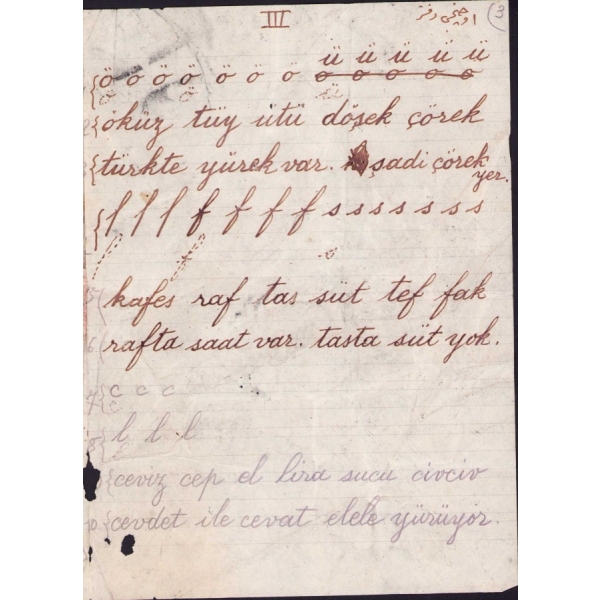 III
3
ü ü ü ü ü
ö ö ö ö ö ö ö ö ö ö ö ö
öküz tüy ütü döşek çörek
türkte yürek var. sadi çörek
yer.
l l l f f f f s s s s s s s
5 kafes raf tas süt tef fak
6 rafta saat var. tasta süt yok.
7 c c c
8 l l l
ceviz cep el lira sucu civciv
10 cevdet ile cevat elele yürüyor.